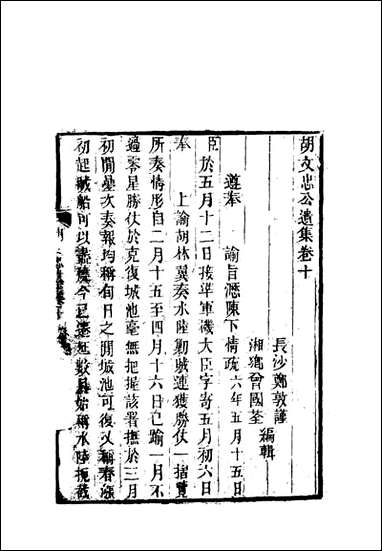 胡文忠公遺集卷十
長沙鄭敦謹
湘鄉曾國荃 編輯
遵奉 諭旨瀝陳下情疏 六年五月十五日
臣於五月十二日接準軍機大臣字寄五月初六日
奉 上諭胡林翼奏水陸勦賊連獲勝仗一摺覽
所奏情形自二月十五至四月十六日已踰一月不
過零星勝仗於克復城池毫無把握該署撫於三月
初間疊次奏報均稱旬日之間城池可復又稱春漲
初起賊船可以盡燒今已遲延數月始稱水陸扼截